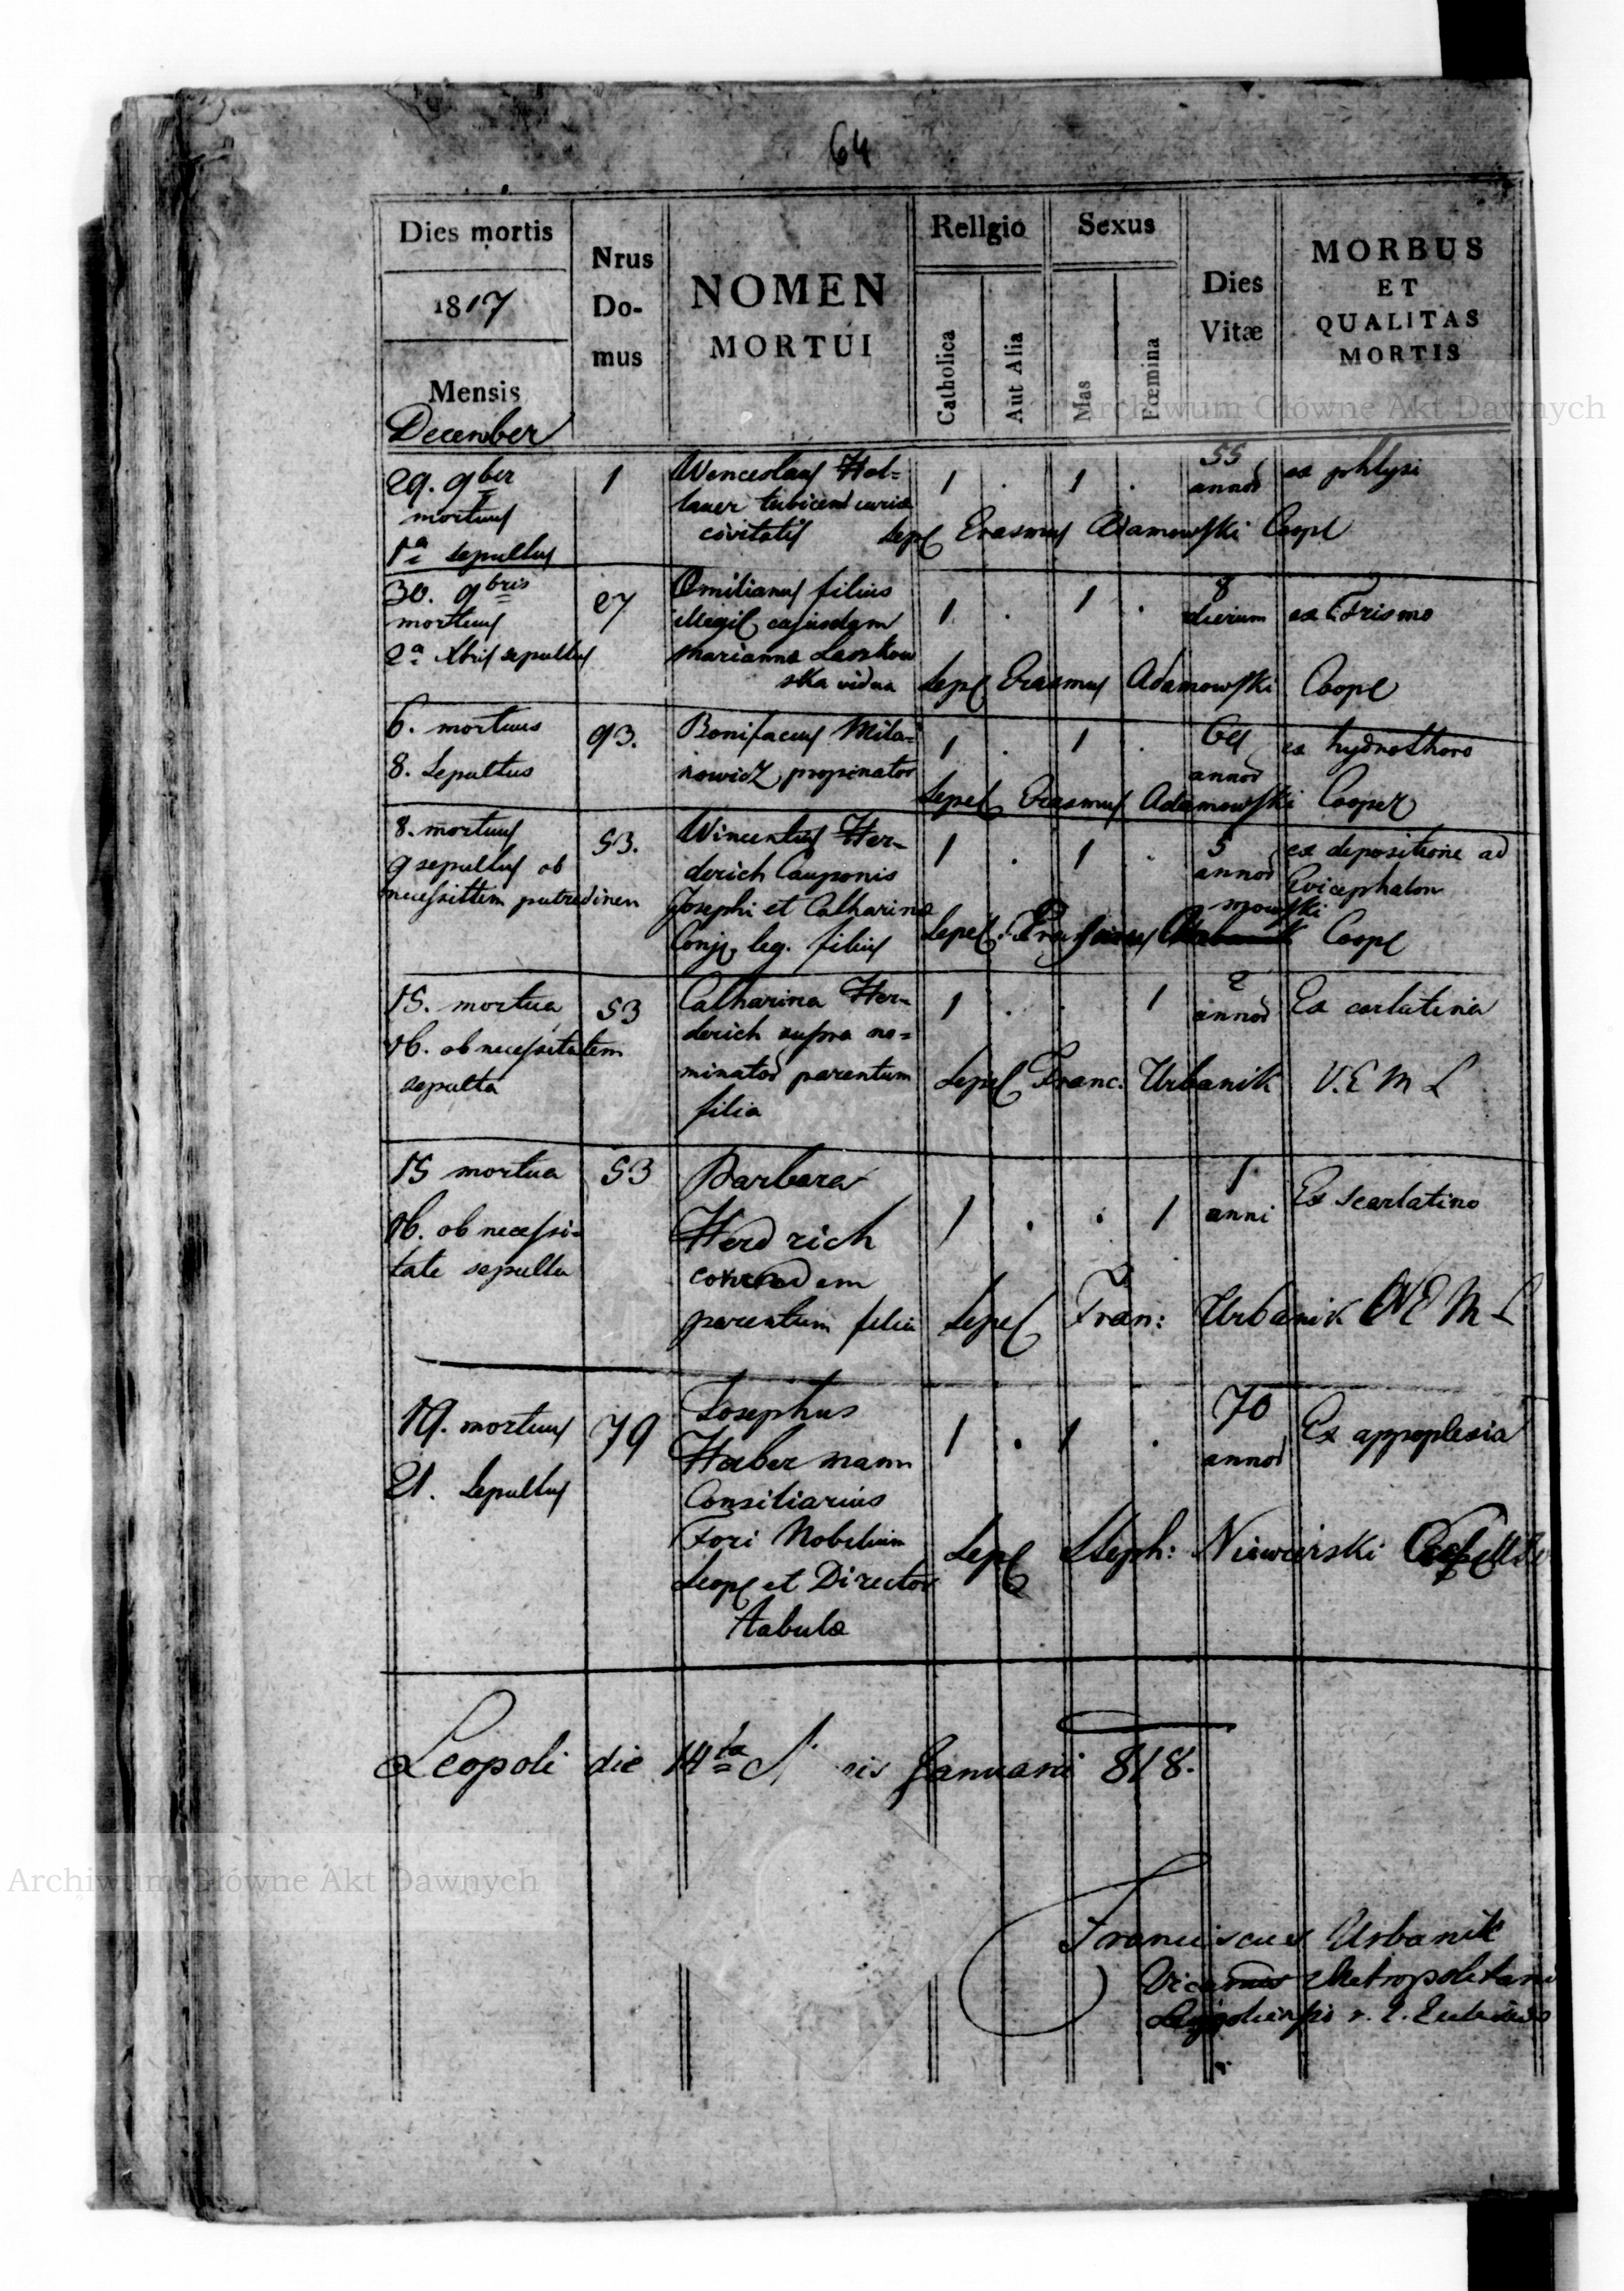 64
Dies mortis
1817
Mensis
December
Nrus
Do-
mus
NOMEN
MORTUI
Religio
Catholica
Aut Alia
Sexus
Mas
Fœmina
Dies
Vitæ
MORBUS
ET
QUALITAS
MORTIS
29. 9ber
mortuus
1a sepultus
1
Wenceslaus Hol=
lauer tubicend curiæ
civitatis
1 . 1 .
55
annor
ex phtysi
Sepel Erasmus Adamowski Coope
30. 9bris
mortuus
2a Xbris sepultus
27
Emilianus filius
illegit cujusdam
Marianna Laszkow
ska vidua
1 . 1 .
8
dierum
ex Trismo
Sepel Erasmus Adamowski Coope
6. mortuus
8. Sepultus
93.
Bonifacius Mila=
nowicz propinator
1 . 1 .
64
annor
ex hydrothoro
Sepel Erasmus Adamowski Cooper
8. mortuus
9 sepultus ob
necessittem putredinem
53.
Wincentus Her=
derich Cauponis
Josephi et Catharinæ
Conjg leg. filius
1 . 1 .
5
annor
ex depositione ad
Evicephalon
Sepel Erasmus mowski Coope
15. mortua
16. ob necessitatem
sepulta
53
Catharina Her=
derich supra no=
minator parentum
filia
1 . . 1
2
annor
Ex carlatina
Sepel Franc. Urbanik V. E M L
15 mortua
16. ob necessi=
tate sepulta
53
Barbara
Herd rich
eorundem
parentum filia
1 . . 1
1
anni
Ex Scarlatino
Sepel Fran: Urbanik V E M L
19. mortuus
21. Sepultus
79
Josephus
Haber mann
Consiliarius
Fori Nobilium
Leopl et Director
Tabulæ
1 . 1 .
70
annor
Ex appoplexia
Sepel Steph: Niewierski
Leopoli die 14ta Januarii 818.
Franciscus Urbanik
Vicarius Metropolitani
Archiwum Główne Akt Dawnych
Archiwum Główne Akt Dawnych